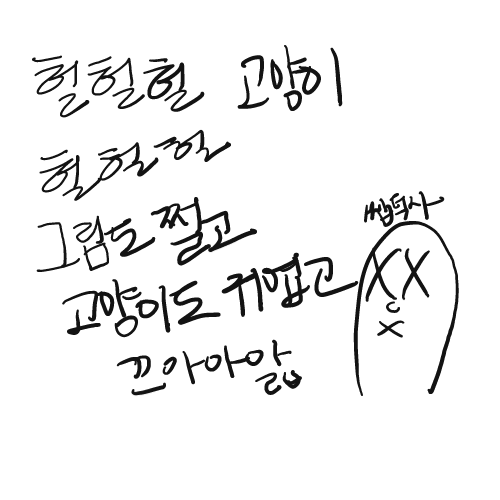 헐헐헐 고양이
헐헐헐
그림도 쩔고
고양이도 귀엽고
끄아아앎
쌉덕사